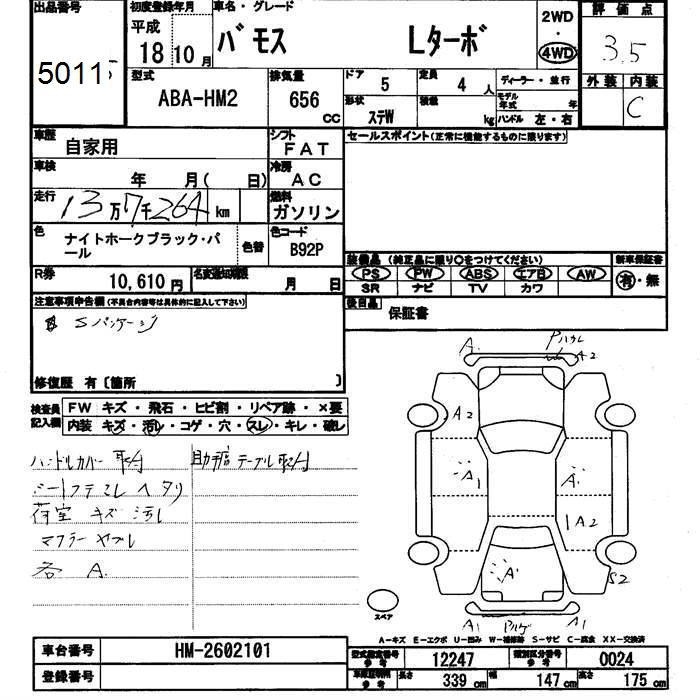 出品番号 初度登録年月 車名・グレード 2WD 評価点
平成 18 10月 バモス Lターボ ・ 4WD 3.5
5011
型式 排気量 ドア 定員 ディーラー・並行 外装 内装
ABA-HM2 656 CC 5 4人 モデル年式 年 C
形状 ステW 積載 kg ハンドル 左・右
車歴 自家用 シフト FAT セールスポイント(正常に機能するものに限ります)
車検 年 月( 日) 冷房 AC
走行 13万7千264km 燃料 ガソリン
色 ナイトホークブラック・パール 色替 色コード B92P
装備品 (純正品に限り○をつけてください) 新車保証書
PS PW ABS エアB AW 有・無
SR ナビ TV カワ
R券 10,610円 名変通知期限 月 日
後日品 保証書
注意事項申告欄(不具合内容等は具体的に記入して下さい)
Sパッケージ
修復歴 有〔箇所 〕
検査員記入欄 FW キズ・飛石・ヒビ割・リペア跡・×要
内装 キズ・汚レ・コゲ・穴・スレ・キレ・破レ
ハンドルカバー取付 助手席テーブル取付
シートフテミレヘタリ
荷室 キズ 汚レ
マフラーヤブレ
各 A
A Pハガレ A2
A2
A1 A1
A2
A1
S2
A1 A1
スペア
A-キズ E-エクボ U-凹み W-補修跡 S-サビ C-腐食 XX-交換済
車台番号 HM-2602101
型式指定番号 参考 12247 類別区分番号 参考 0024
登録番号
車庫証明用 参考 長さ 339cm 幅 147cm 高さ 175cm